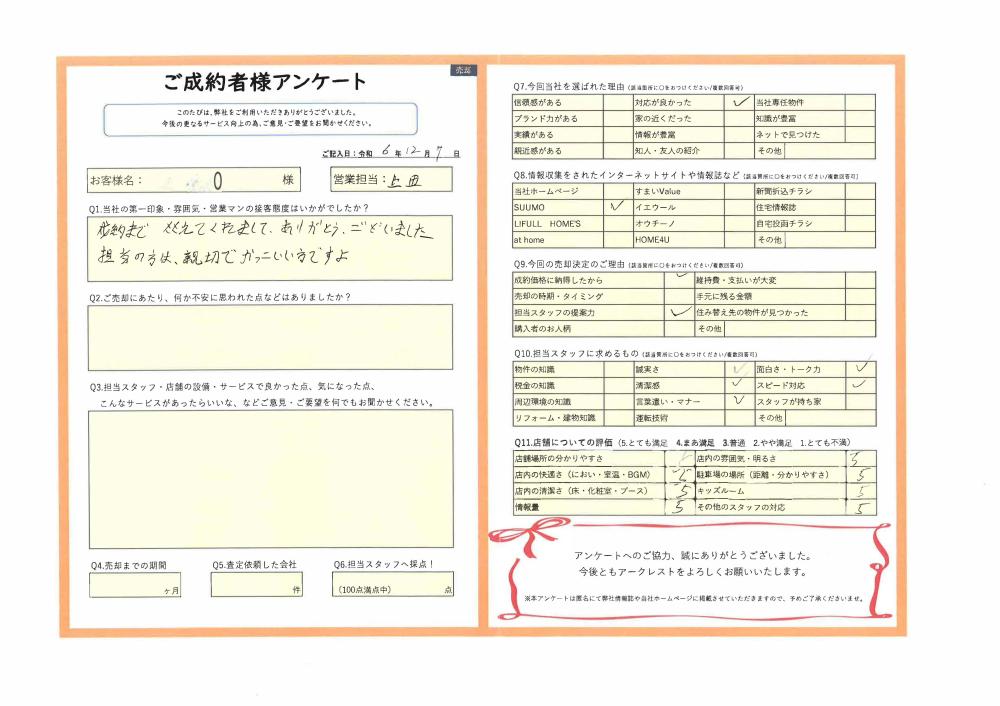 売却
ご成約者様アンケート
このたびは、弊社をご利用いただきありがとうございました。
今後の更なるサービス向上の為、ご意見・ご要望をお聞かせください。
ご記入日：令和 6 年 12 月 7 日
お客様名： O 様
営業担当：上田
Q1.当社の第一印象・雰囲気・営業マンの接客態度はいかがでしたか？
成約まで 支えてくれまして、ありがとう、ございました
担当の方は、親切でかっこいい方ですよ
Q2.ご売却にあたり、何か不安に思われた点などはありましたか？
Q3.担当スタッフ・店舗の設備・サービスで良かった点、気になった点、
こんなサービスがあったらいいな、などご意見・ご要望を何でもお聞かせください。
Q4.売却までの期間
ヶ月
Q5.査定依頼した会社
件
Q6.担当スタッフへ採点！
(100点満点中) 点
Q7.今回当社を選ばれた理由 (該当箇所に○をおつけください/複数回答可)
信頼感がある 対応が良かった ✓ 当社専任物件
ブランド力がある 家の近くだった 知識が豊富
実績がある 情報が豊富 ネットで見つけた
親近感がある 知人・友人の紹介 その他
Q8.情報収集をされたインターネットサイトや情報誌など (該当箇所に○をおつけください/複数回答可)
当社ホームページ すまいValue 新聞折込チラシ
SUUMO ✓ イエウール 住宅情報誌
LIFULL HOME'S オウチーノ 自宅投函チラシ
at home HOME4U その他
Q9.今回の売却決定のご理由 (該当箇所に○をおつけください/複数回答可)
成約価格に納得したから ✓ 維持費・支払いが大変
売却の時期・タイミング 手元に残る金額
担当スタッフの提案力 ✓ 住み替え先の物件が見つかった
購入者のお人柄 その他
Q10.担当スタッフに求めるもの (該当箇所に○をおつけください/複数回答可)
物件の知識 誠実さ ✓ 面白さ・トーク力 ✓
税金の知識 清潔感 ✓ スピード対応 ✓
周辺環境の知識 言葉遣い・マナー ✓ スタッフが持ち家
リフォーム・建物知識 運転技術 その他
Q11.店舗についての評価 (5.とても満足 4.まあ満足 3.普通 2.やや満足 1.とても不満)
店舗場所の分かりやすさ 5 店内の雰囲気・明るさ 5
店内の快適さ（におい・室温・BGM） 5 駐車場の場所（距離・分かりやすさ） 5
店内の清潔さ（床・化粧室・ブース） 5 キッズルーム 5
情報量 5 その他のスタッフの対応 5
アンケートへのご協力、誠にありがとうございました。
今後ともアークレストをよろしくお願いいたします。
※本アンケートは匿名にて弊社情報誌や当社ホームページに掲載させていただきますので、予めご了承くださいませ。